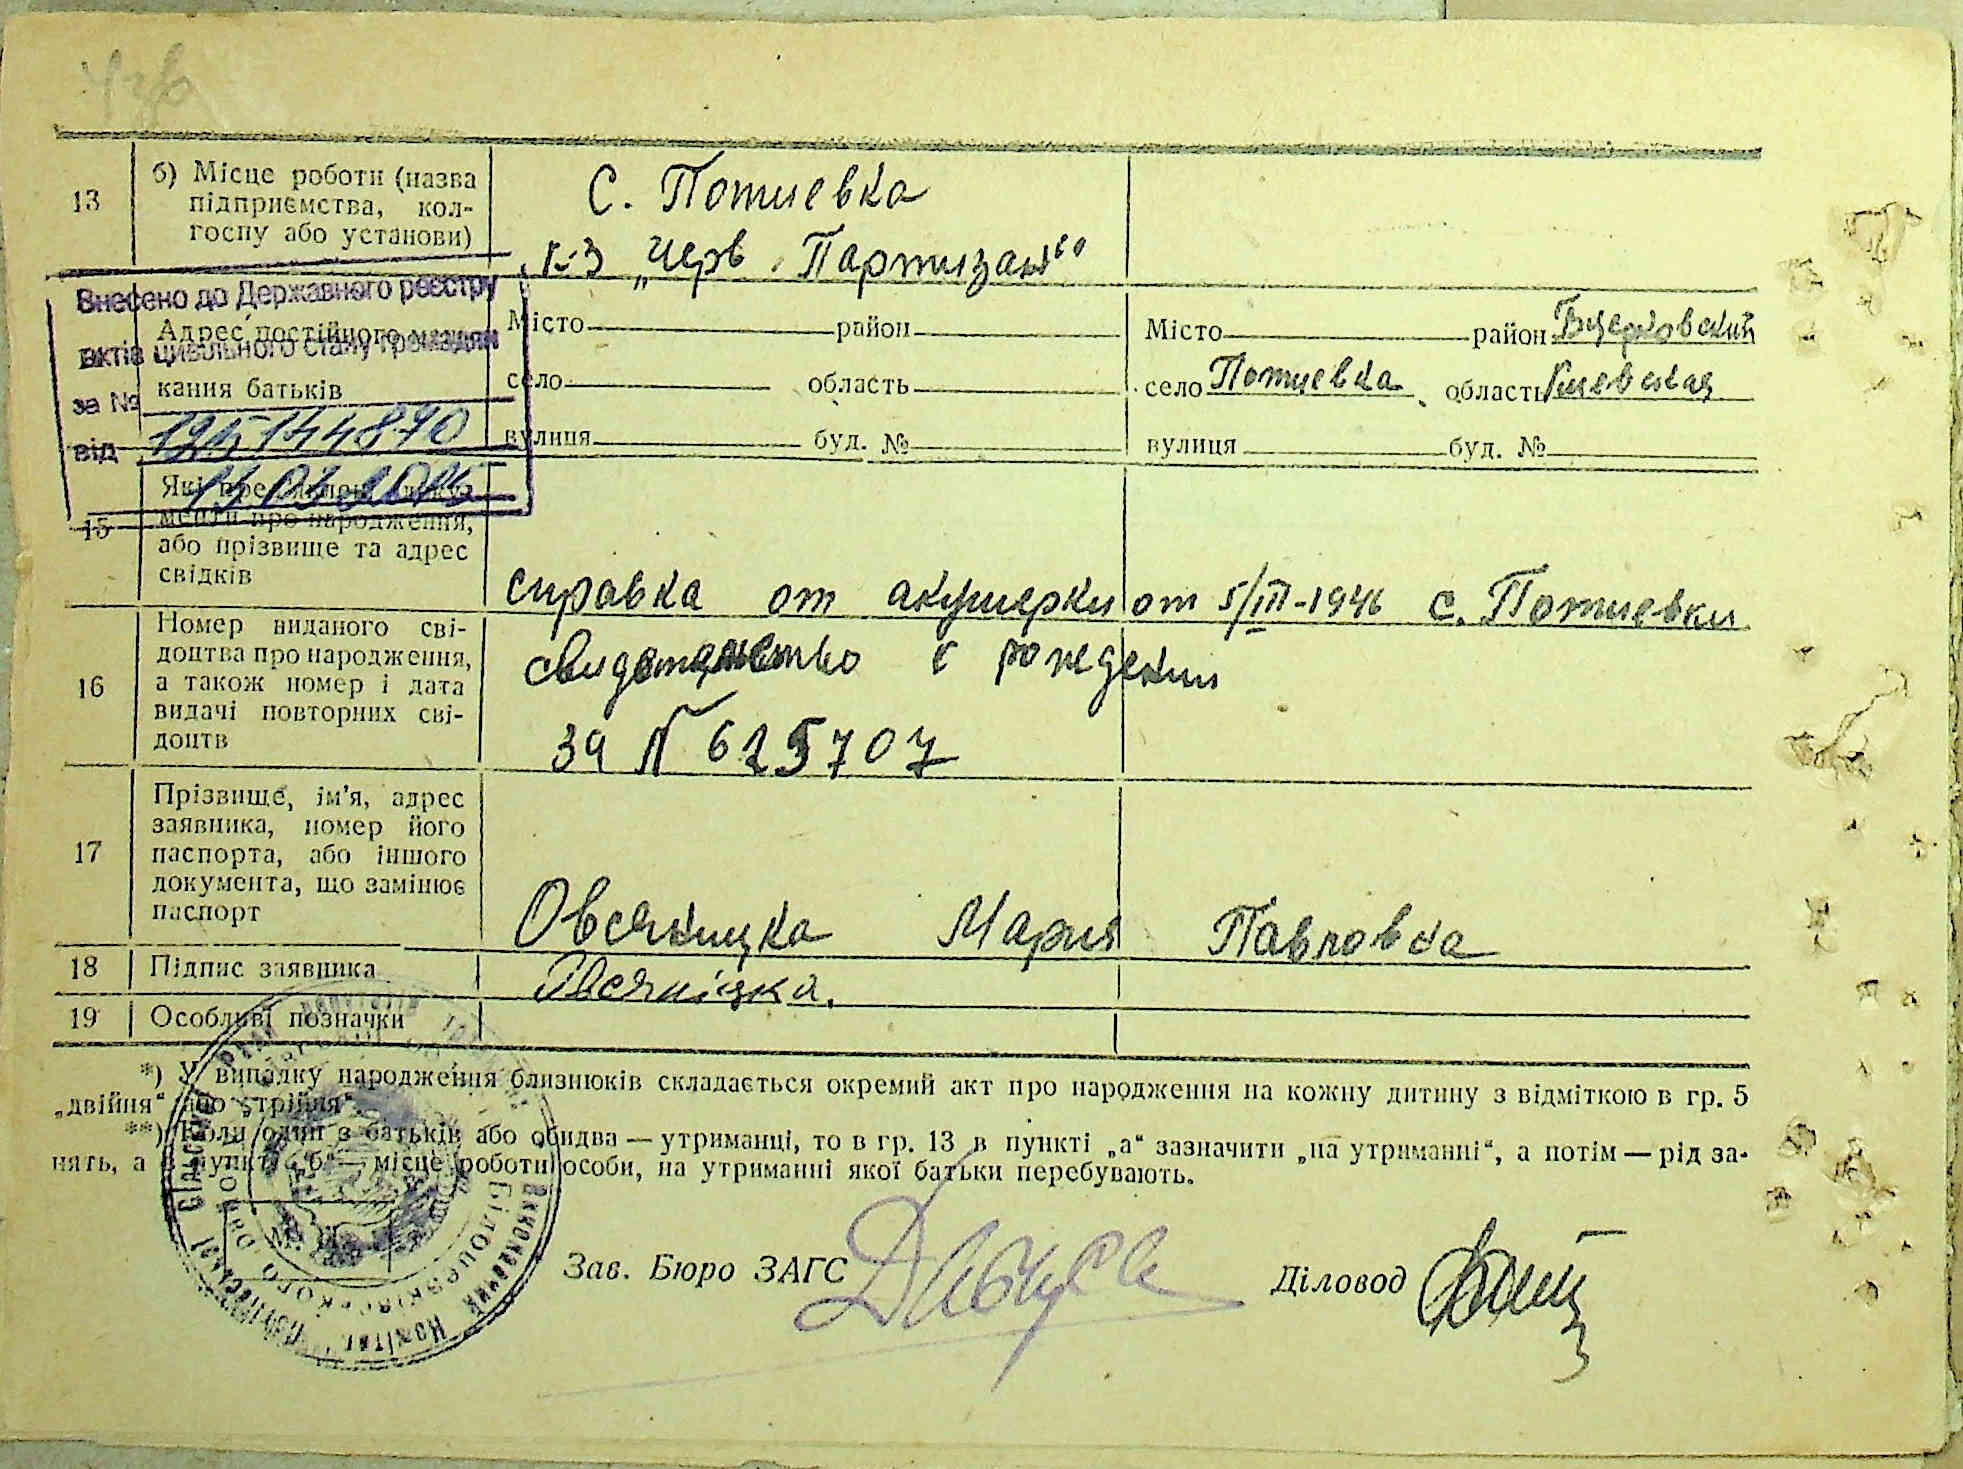 13
б) Місце роботи (назва
підприємства, кол-
госпу або установи)
С. Потиевка
к-з „Черв. Партизан“
Внесено до Державного реєстру
актів цивільного стану громадян
за №
від
Адрес постійного
кання батьків
Місто район
село область
вулиця буд. №
Місто район Бцерковский
село Потиевка область Киевская
вулиця буд. №
15
Які
менти про народження,
або прізвище та адрес
свідків
справка от акушерки от 5/III-1946 с. Потиевки
16
Номер виданого сві-
доцтва про народження,
а також номер і дата
видачі повторних сві-
доцтв
свидетельство о рождении
за № 625707
17
Прізвище, ім'я, адрес
заявника, номер його
паспорта, або іншого
документа, що замінює
паспорт
Овсяницка Мария Павловна
18
Підпис заявника
Овсяніцка.
19
Особливі позначки
*) У випадку народження близнюків складається окремий акт про народження на кожну дитину з відміткою в гр. 5
„двійня“ або „трійня“.
**) Коли один з батьків або обидва — утриманці, то в гр. 13 в пункті „а“ зазначити „на утриманні“, а потім — рід за-
нять, а в пункті „б“ — місце роботи особи, на утриманні якої батьки перебувають.
Зав. Бюро ЗАГС
Діловод